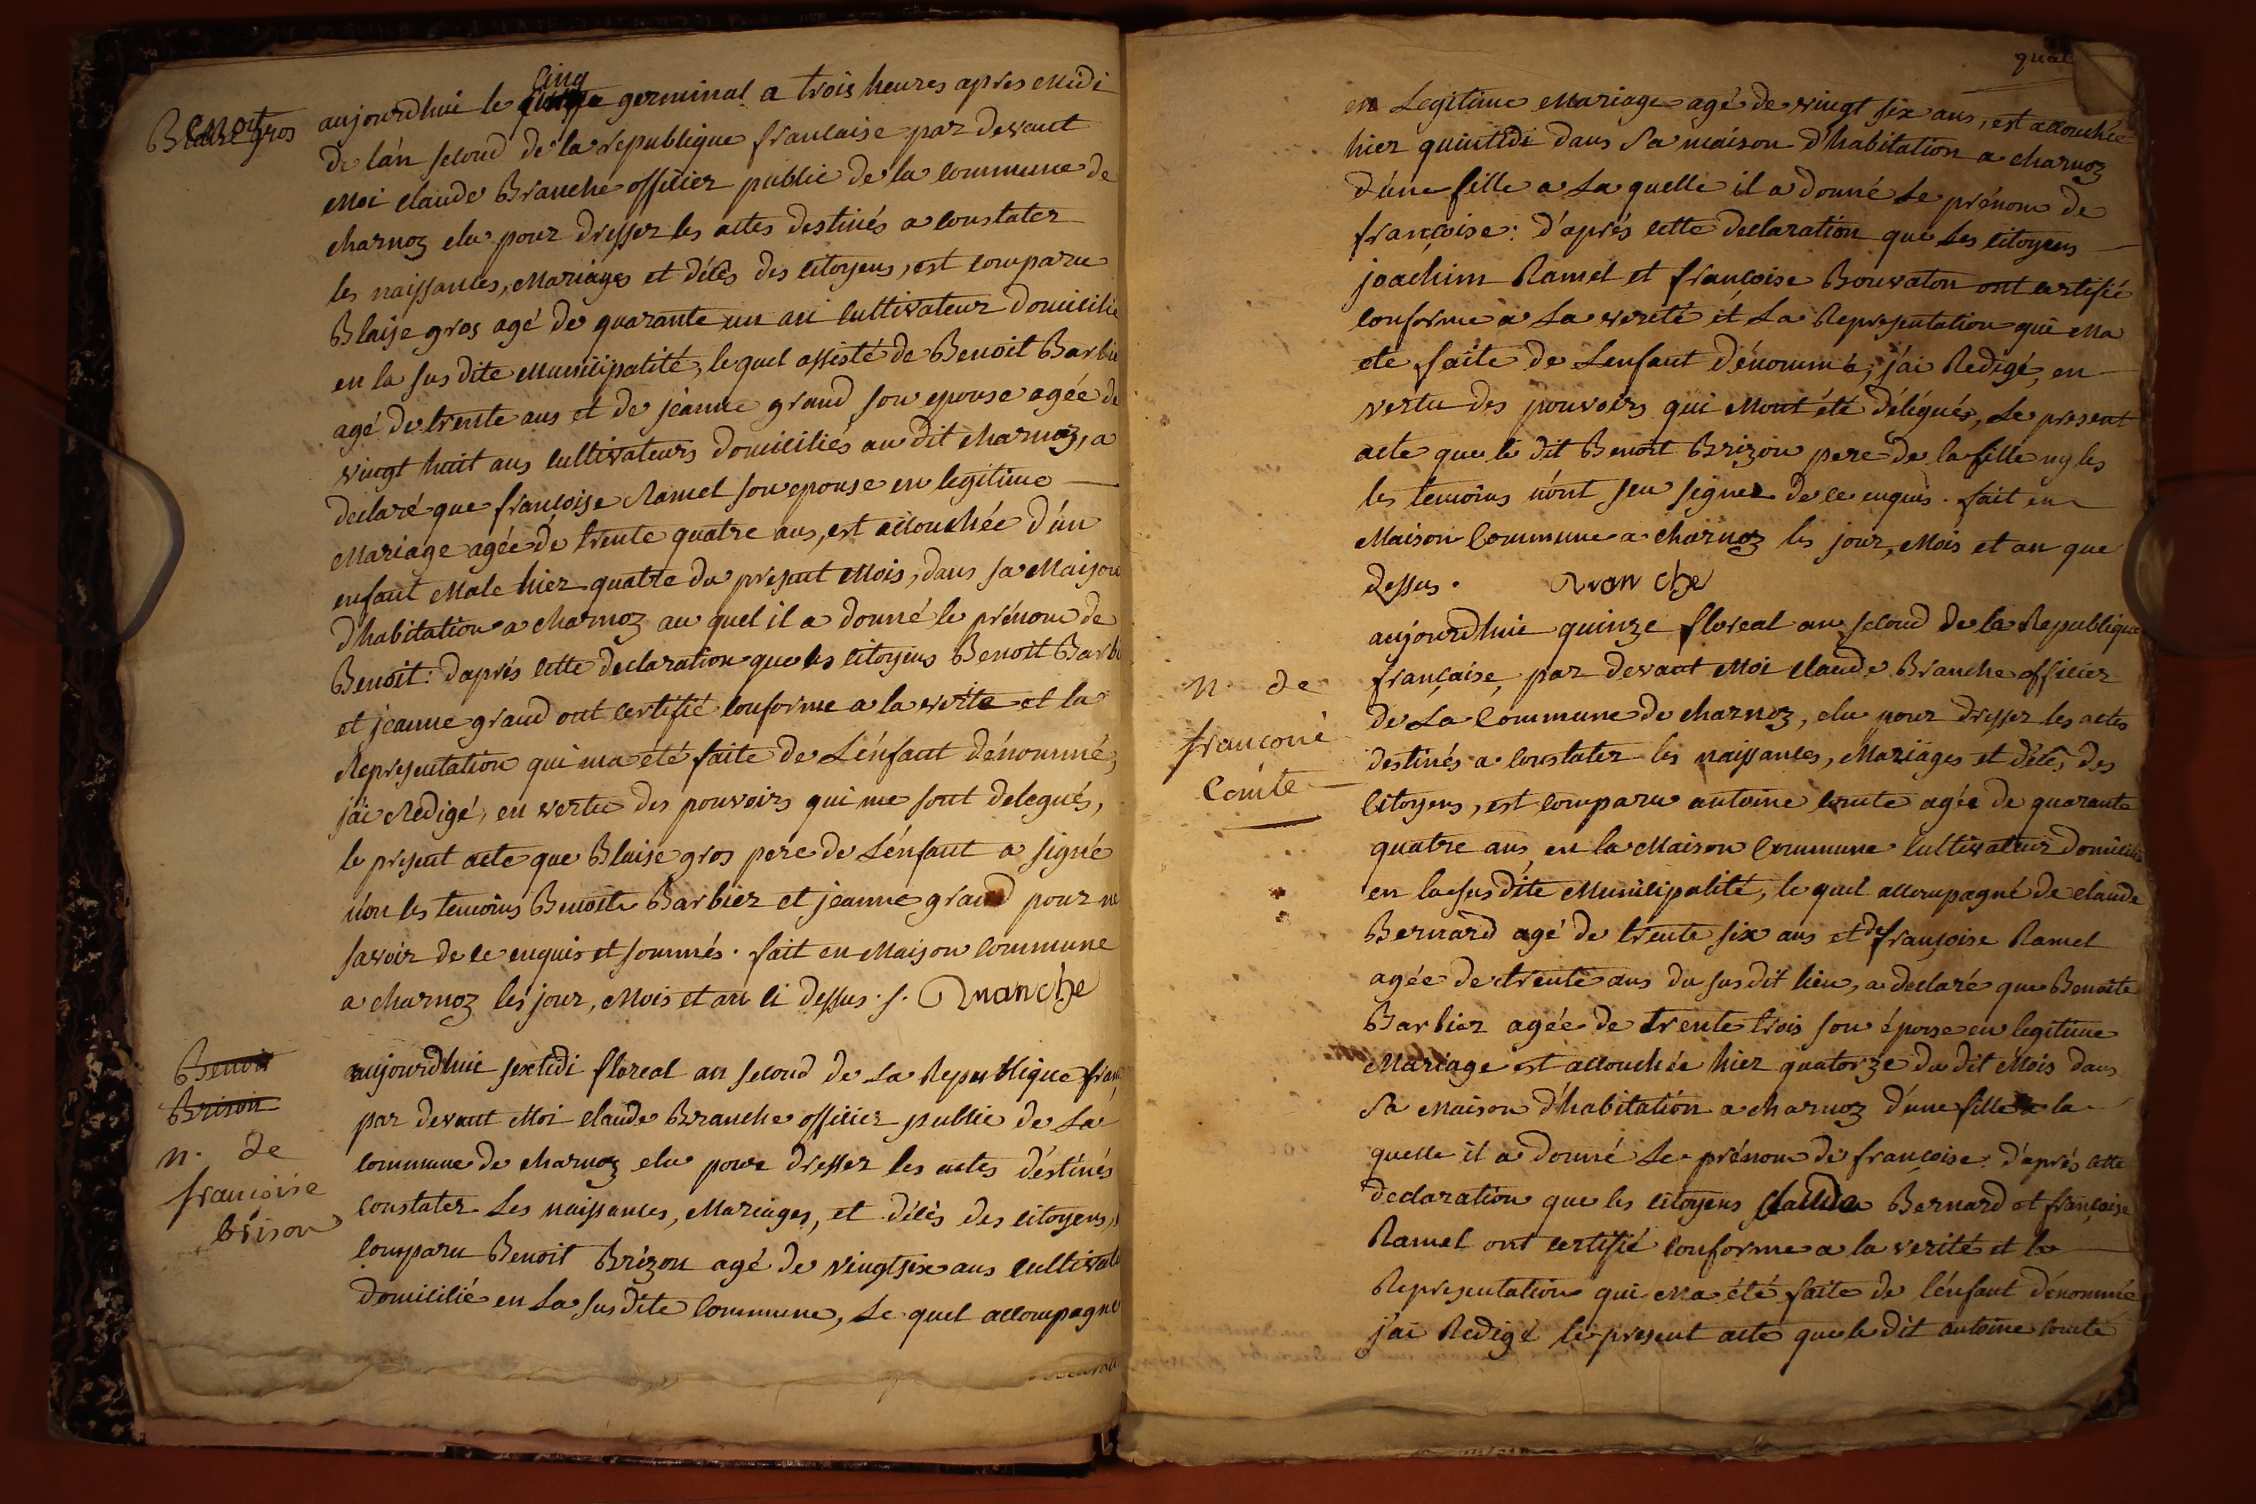 Benoit gros
aujourdhui le cinq germinal a trois heures apres midi
de l'an second de la republique francaise par devant
Moi claude Branche officier public de la commune de
charnoz elu pour dresser les actes destinés a constater
les naissances, Mariages et décès des citoyens, est comparu
Blaise gros agé de quarante un an cultivateur domicilié
en la susdite Municipalité, le quel assisté de Benoit Barbie
agé de trente ans et de jeanne grand son epouse agée de
vingt huit ans cultivateurs domiciliés au dit charnoz, a
declaré que francoise Ramel son epouse en legitime
Mariage agée de trente quatre ans, est accouchée d'un
enfant Male hier quatre du present Mois, dans sa Maison
d'habitation a charnoz au quel il a donné le prénom de
Benoit: d'aprés cette declaration que les citoyens Benoit Barbi
et jeanne grand ont certifié conforme a la verite et la
Representation qui ma été faite de L'énfant dénommé,
j'ai Redigé, en vertu des pouvoirs qui me sont delegués,
le present acte que Blaise gros pere de L'énfant a signé
non les temoins Benoit Barbier et jeanne grand pour ne
savoir de ce enquis et sommés. fait en Maison commune
a charnoz les jour, Mois et an ci dessus. s. Branche
Benoit
Brison
n. de
francoise
brison
aujourdhui sextidi floreal an second de La Republique fran
par devant Moi claude Branche officier public de La
commune de charnoz elu pour dresser les actes déstinés
constater Les naissances, Mariages, et décès des citoyens,
comparu Benoit Brizon agé de vingt six ans cultivat
domicilié en La susdite Commune, Le quel accompagné
en Legitime Mariage agé de vingt six ans, est accouchée
hier quintidi dans sa maison d'habitation a charnoz
d'une fille a La quelle il a donné Le prénom de
françoise: d'aprés cette declaration que Les citoyens
joachim Ramel et françoise Bouvaton ont certifié
conforme a La verité et La Representation qui Ma
ete faite de Lenfant dénommé, j'ai Redigé, en
vertu des pouvoirs qui Mont été délégués, Le present
acte que le dit Benoit Brizon pere de la fille ny les
les temoins n'ont seu signer de ce enquis. fait en
Maison Commune a charnoz les jour, Mois et an que
dessus. Branche
n. de
francoise
Comte
aujourdhui quinze floreal an second de la Republique
française, par devant Moi claude Branche officier
de La Commune de charnoz, elu pour dresser les actes
destinés a constater les naissances, Mariages et décès, des
Citoyens, est comparu antoine comte agée de quarante
quatre ans en la Maison Commune cultivateur domicilié
en la susdite Municipalité, le quel accompagné de claude
Bernard agé de trente six ans et de françoise Ramel
agée de trente ans du susdit lieu, a declaré que Benoite
Barbier agée de trente trois son épouse en legitime
Mariage est accouchée hier quatorze du dit Mois dans
sa Maison d'habitation a charnoz d'une fille a la
quelle il a donné Le prénom de francoise: d'aprés cette
declaration que les citoyens claude Bernard et françoise
Ramel ont certifié conforme a la verité et la
Representation qui Ma été faite de l'énfant dénommé
j'ai Redigé le present acte que le dit antoine comte